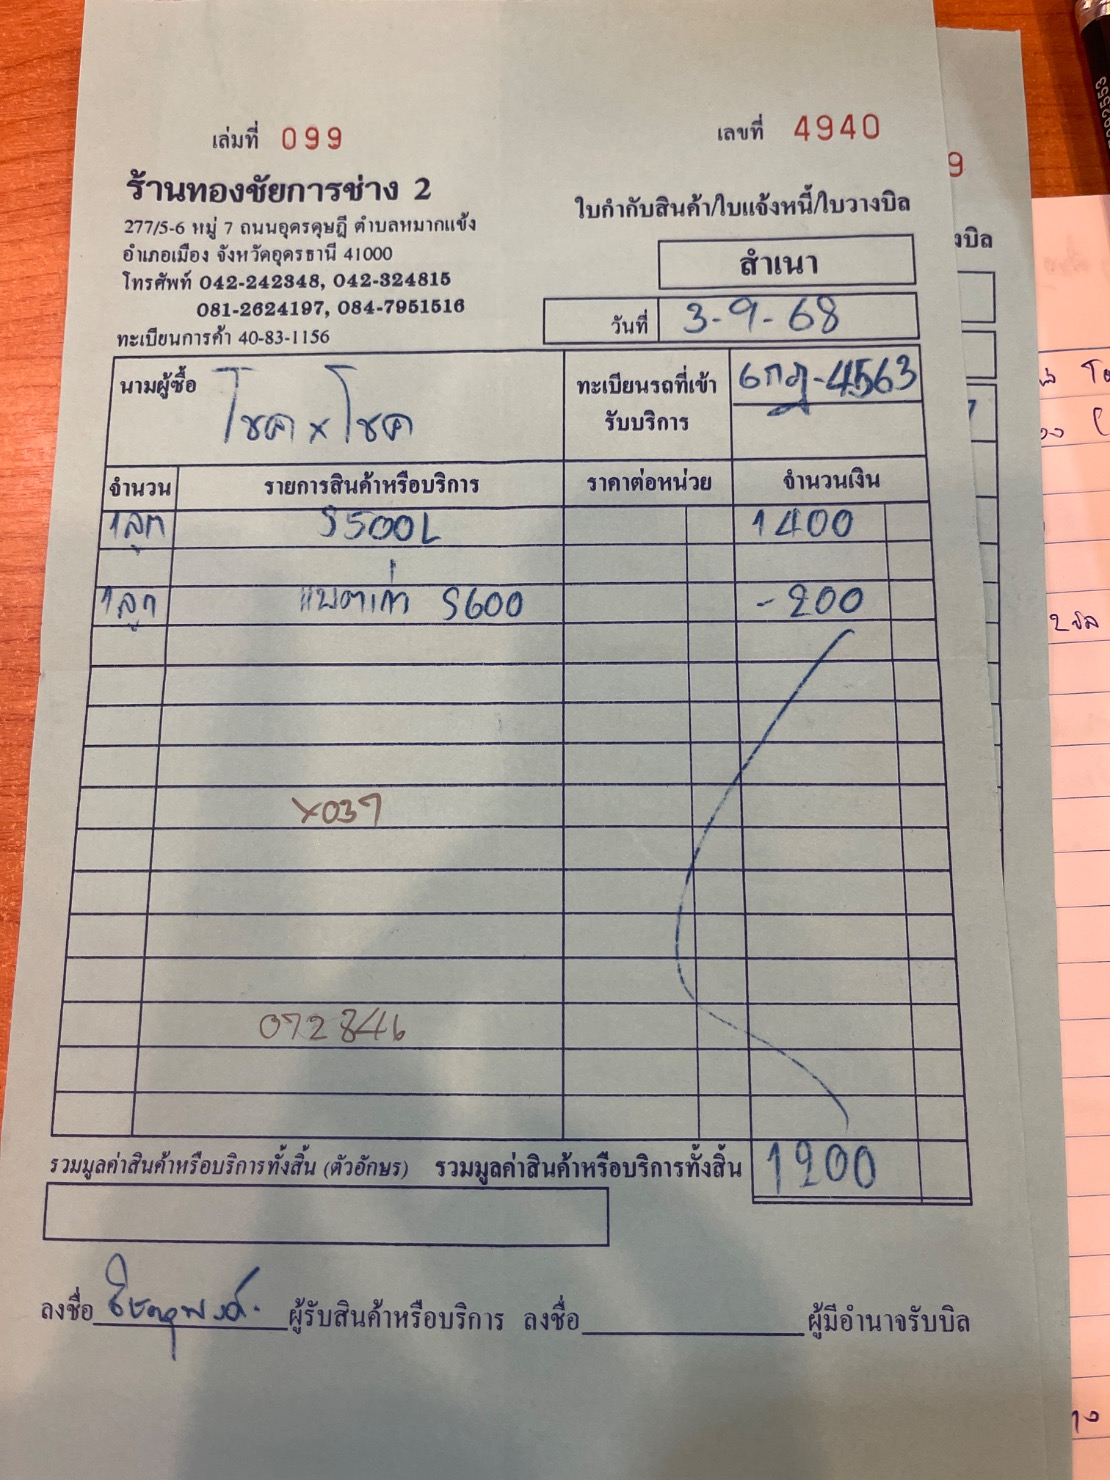 เล่มที่ 099
เลขที่ 4940
ร้านทองชัยการช่าง 2
277/5-6 หมู่ 7 ถนนอุดรดุษฎี ตำบลหมากแข้ง
อำเภอเมือง จังหวัดอุดรธานี 41000
โทรศัพท์ 042-242348, 042-324815
081-2624197, 084-7951516
ทะเบียนการค้า 40-83-1156
ใบกำกับสินค้า/ใบแจ้งหนี้/ใบวางบิล
สำเนา
วันที่ 3-9-68
นามผู้ซื้อ โชค x โชค
ทะเบียนรถที่เข้ารับบริการ 6กฎ-4563
จำนวน รายการสินค้าหรือบริการ ราคาต่อหน่วย จำนวนเงิน
1 ลูก S500L 1400
1 ลูก แบตเก่า S600 -200
X037
072846
รวมมูลค่าสินค้าหรือบริการทั้งสิ้น (ตัวอักษร) รวมมูลค่าสินค้าหรือบริการทั้งสิ้น 1200
ลงชื่อ ผู้รับสินค้าหรือบริการ ลงชื่อ ผู้มีอำนาจรับบิล